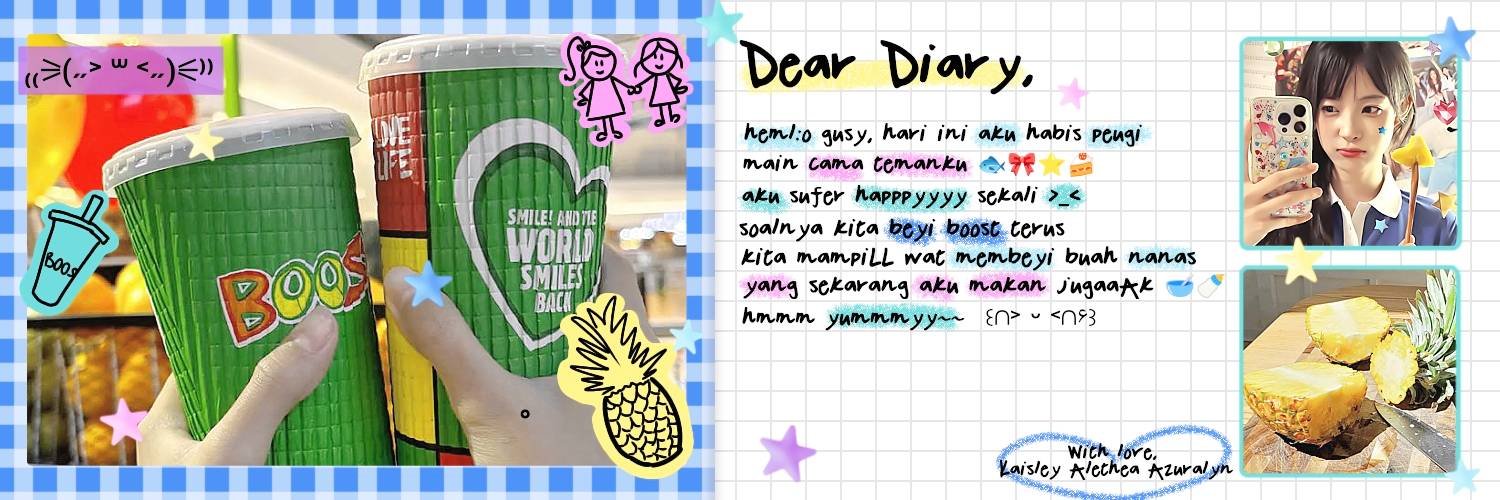 ₍₍⚞(˶> ᵕ <˶)⚟⁾⁾
BOOS
LOVE
LIFE
BOOS
SMILE! AND THE
WORLD
SMILES
BACK
Dear Diary,
hem1:o gusy, hari ini aku habis peugi
main cama temanku 🐟🎀⭐🍰
aku sufer happpyyyy sekali >_<
soalnya kita beyi boost terus
kita mampiLL wat membeyi buah nanas
yang sekarang aku makan jugaaAk 🥣🍼
hmmm yummmyy~~ ꒰ᑎ> ᵕ <ᑎ꒱
With love,
Kaisley Alethea Azuralyn